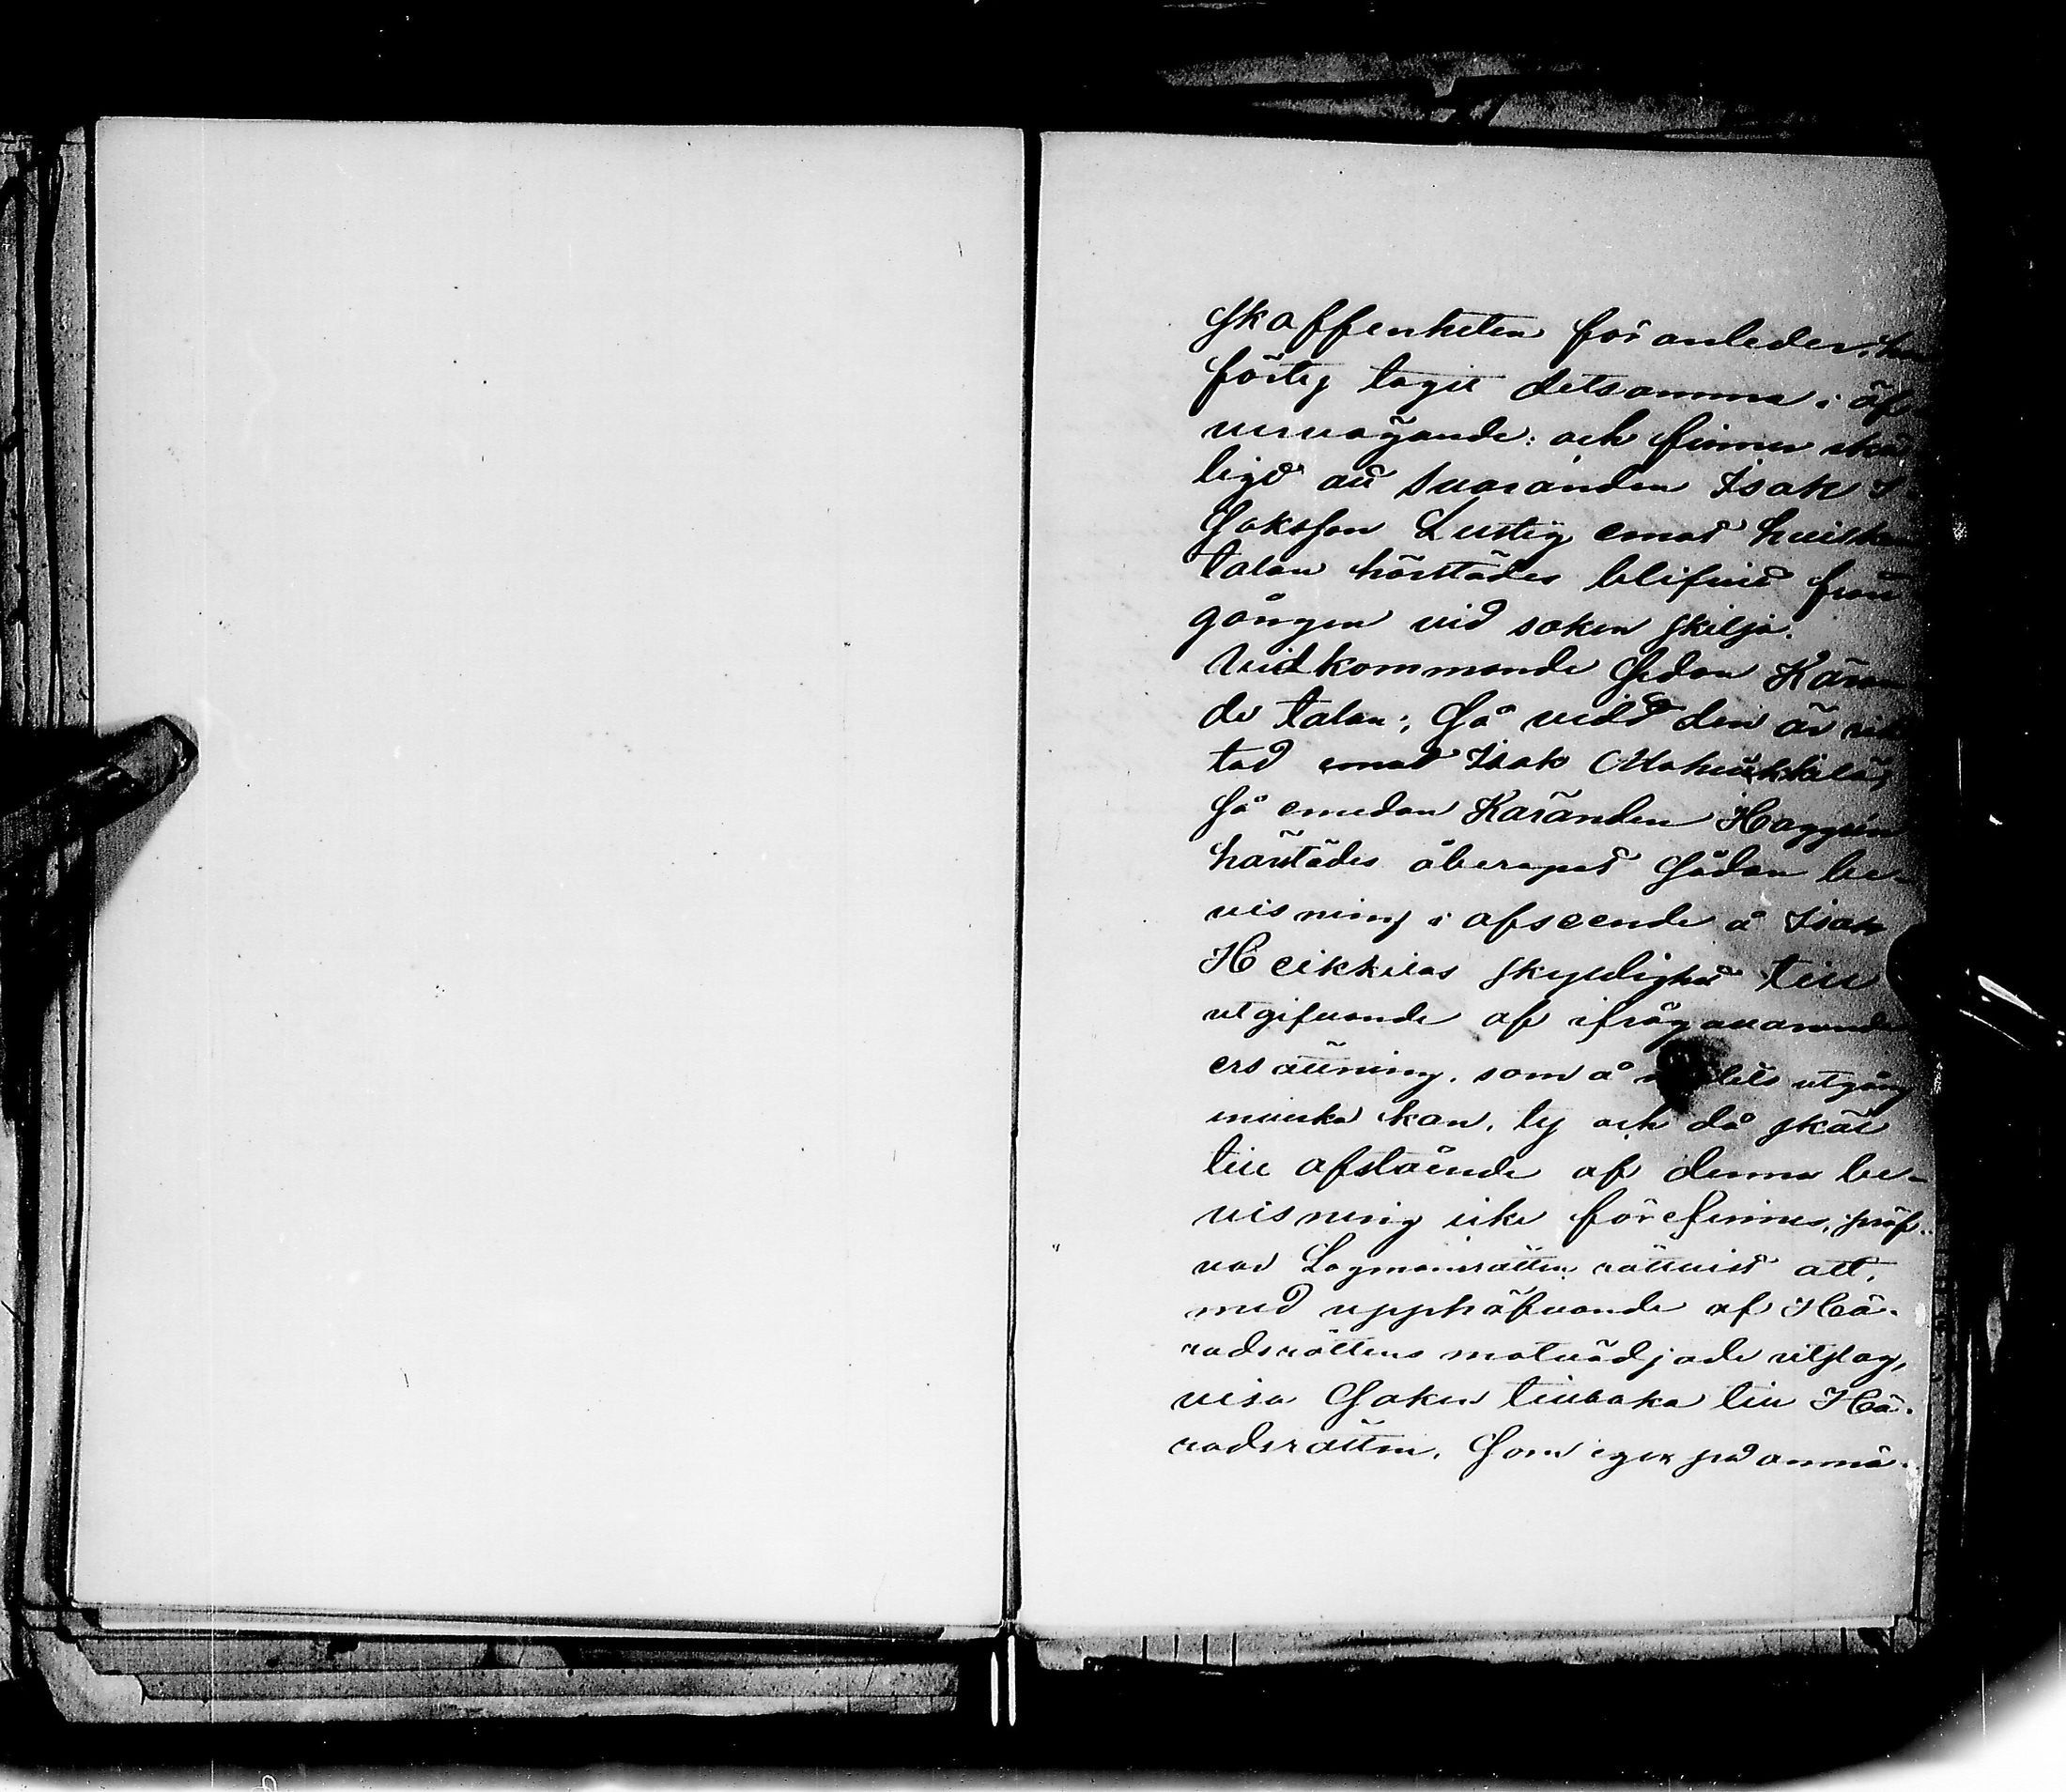 skaffenheten föranleder,
förty tagit detsamma i öf
vervägande: och finner skä
ligt att Svaranden Isak I
saksson Lustig emot hvilken
talan härstädes blifvit från
gången vid saken skilja.
Vidkommande sedan Käran
de talan; så vidt den är rik
tad emot Isak
så emedan Käranden Haggrén
härstädes åberopat sådan be-
visning i afseende å Isak
Heikkiläs skyldighet till
utgifvande af ifrågavarande
ersättning, som å utgång
inverka kan, ty och då skäl
till afslående af denna be-
visning icke förefinnes, pröf-
var Lagmansrätten rättvist att,
med upphäfvande af Hä-
radsrättens motvädjade utslag,
visa saken tillbaka till Hä-
radsrätten, som eger på anmä-